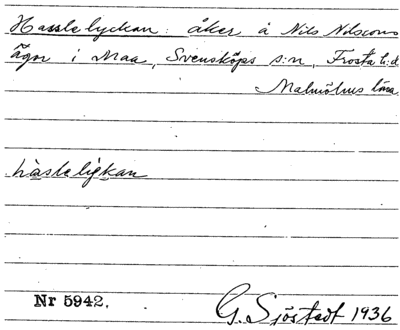 Hasslelyckan: åker å Nils Nilssons
ägor i Maa, Svensköps s:n, Frosta h:d
Malmöhus län
hàslelykan
Nr 5942.
G. Sjöstedt 1936